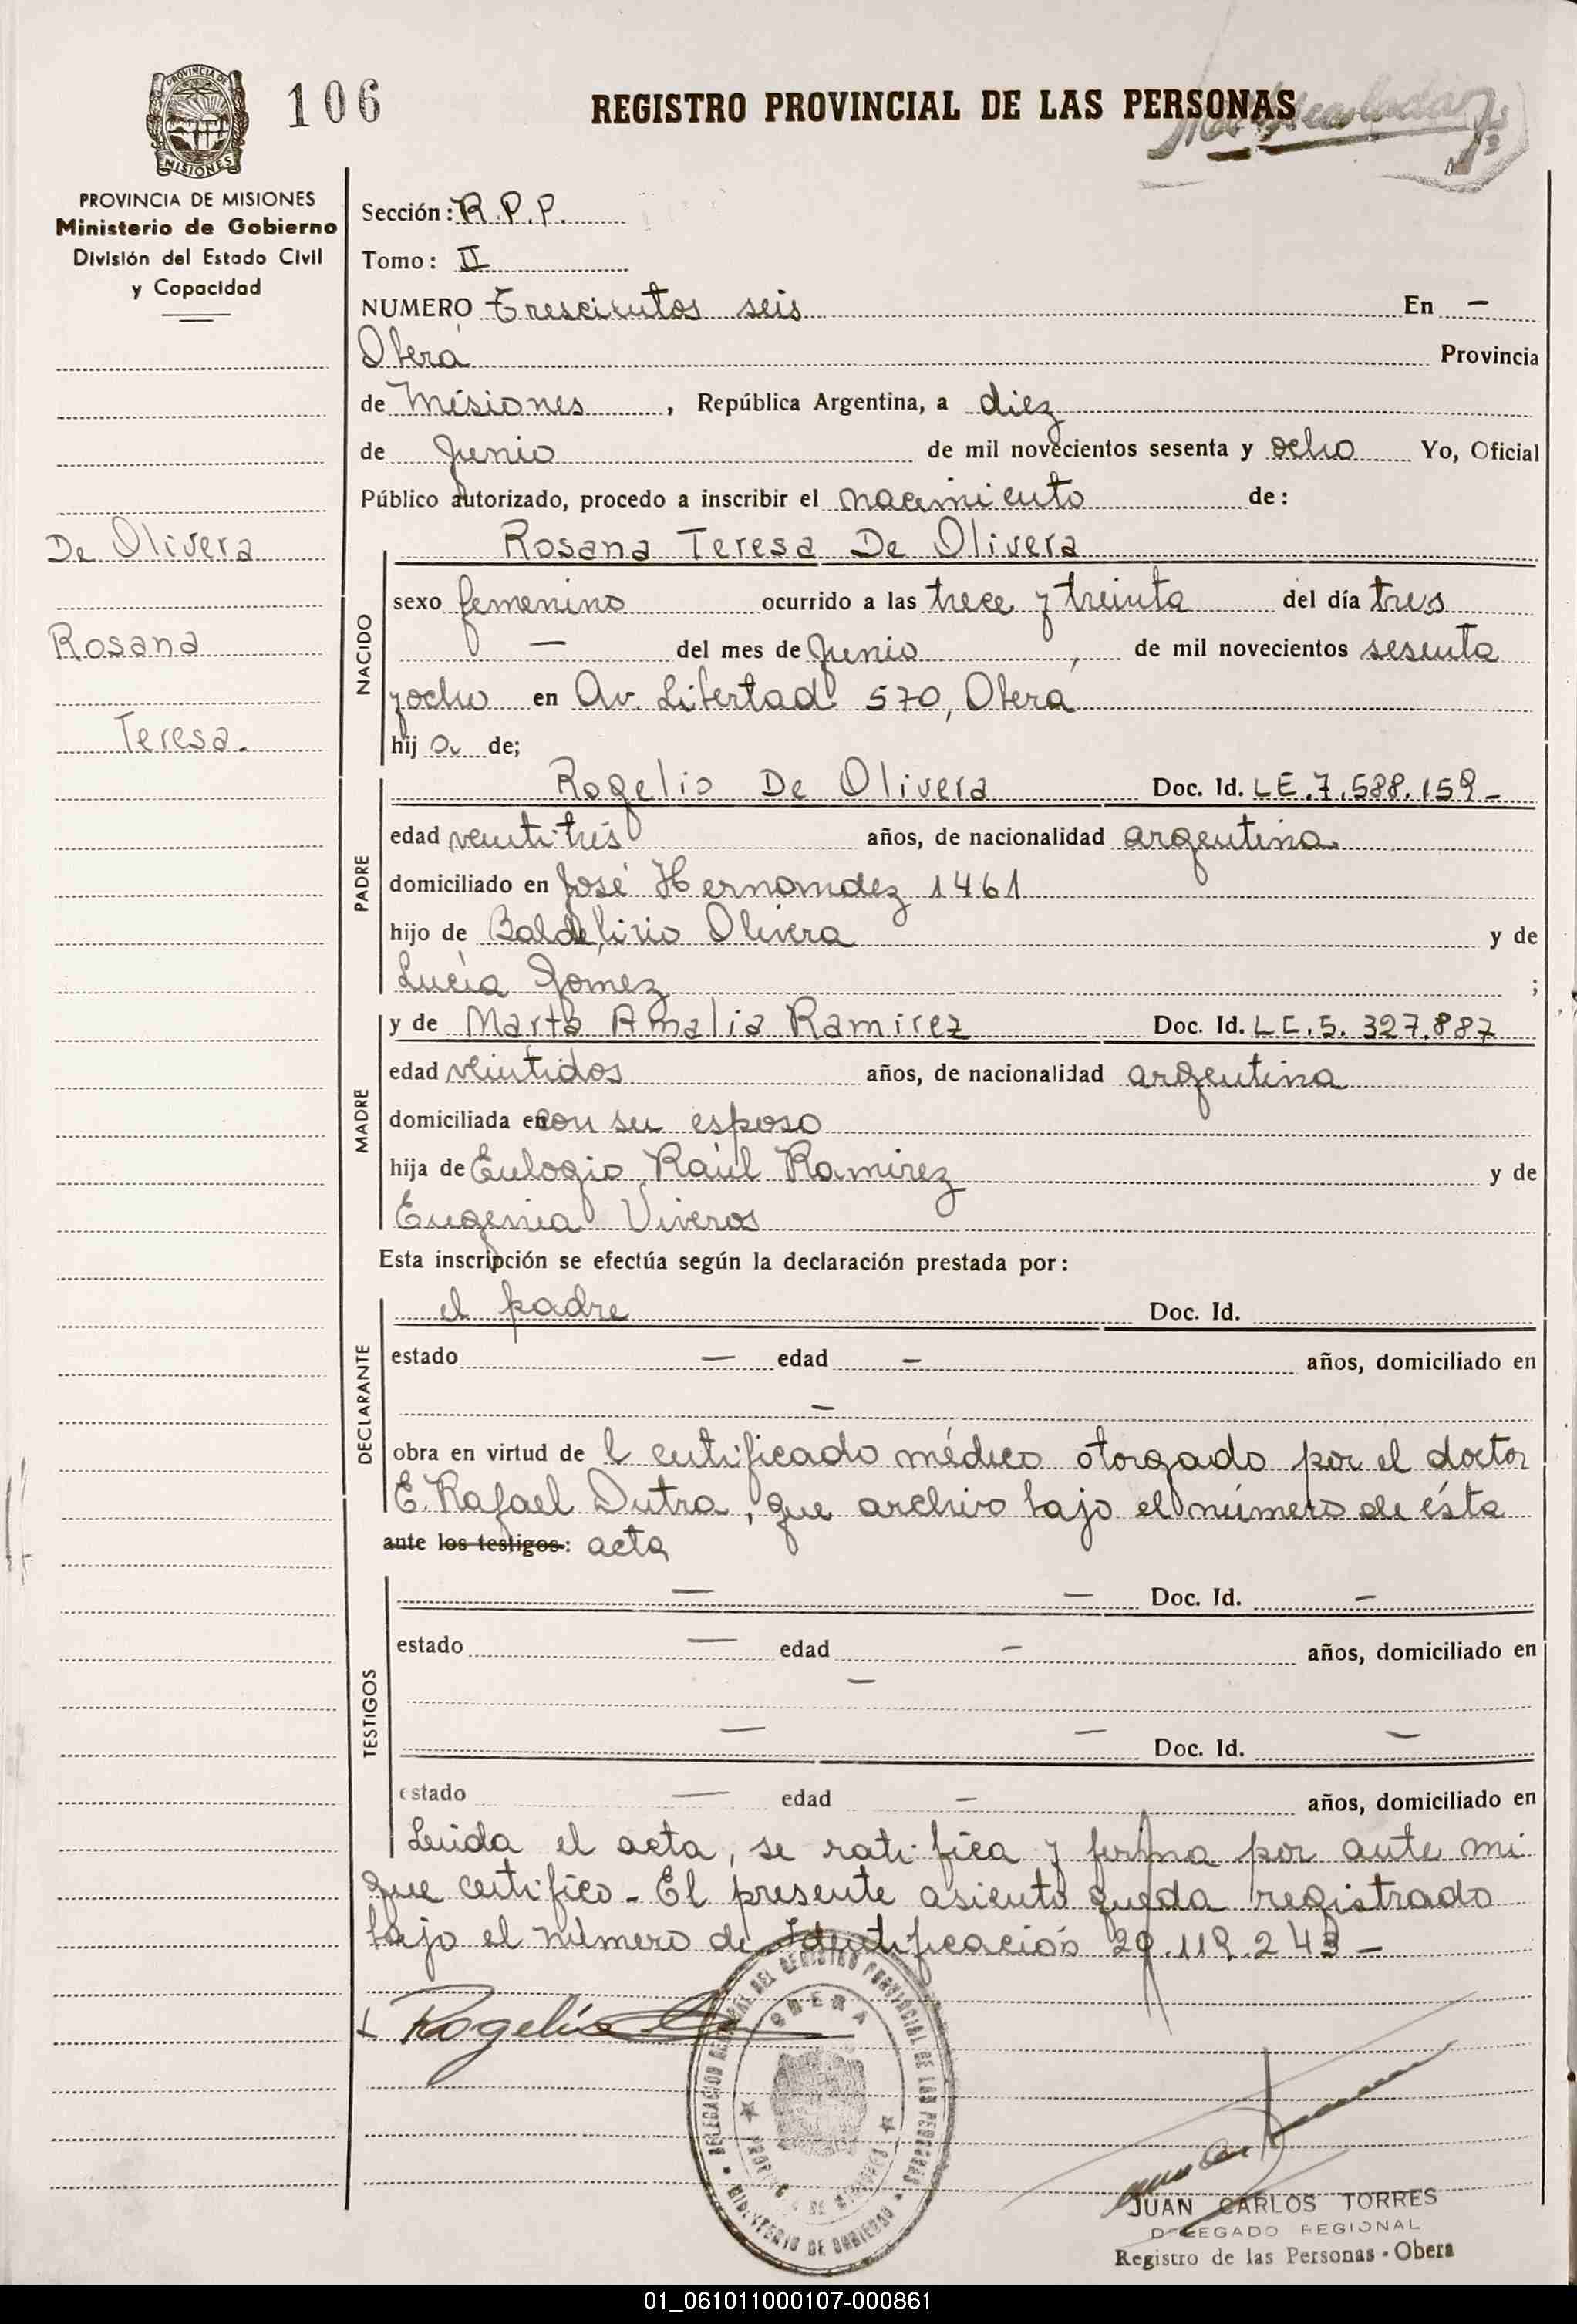 106
REGISTRO PROVINCIAL DE LAS PERSONAS
PROVINCIA DE
MISIONES
PROVINCIA DE MISIONES
Ministerio de Gobierno
División del Estado Civil
y Capacidad
De Olivera
Rosana
Teresa.
Sección: R.P.P.
Tomo: II
NUMERO Trescientos seis En —
Oberá Provincia
de Misiones, República Argentina, a diez
de Junio de mil novecientos sesenta y ocho Yo, Oficial
Público autorizado, procedo a inscribir el nacimiento de:
NACIDO
Rosana Teresa De Olivera
sexo femenino ocurrido a las trece y treinta del día tres
— del mes de Junio, de mil novecientos sesenta
y ocho en Av. Libertad 570, Oberá
hij a de;
PADRE
Rogelio De Olivera Doc. Id. LE.7.588.159-
edad veintitrés años, de nacionalidad argentina
domiciliado en José Hernandez 1461
hijo de Olivera y de
Lucía Gómez ;
MADRE
y de Marta Amalia Ramirez Doc. Id. LC.5.327.887
edad veintidos años, de nacionalidad argentina
domiciliada en con su esposo
hija de Eulogio Raúl Ramirez y de
Eugenia Viveros
Esta inscripción se efectúa según la declaración prestada por:
DECLARANTE
el padre Doc. Id.
estado — edad — años, domiciliado en
—
obra en virtud de l certificado médico otorgado por el doctor
E. Rafael Dutra, que archivo bajo el número de ésta
ante los testigos: acta
TESTIGOS
— — Doc. Id. —
estado — edad — años, domiciliado en
—
— — Doc. Id. —
estado — edad — años, domiciliado en
Leida el acta, se ratifica y firma por ante mi
que certifico - El presente asiento queda registrado
bajo el número de Identificación 20.119.243 -
Rogelio
DELEGACION REGIONAL DEL REGISTRO PROVINCIAL DE LAS PERSONAS
OBERA
PROVINCIA DE MISIONES
MINISTERIO DE GOBIERNO
JUAN CARLOS TORRES
DELEGADO REGIONAL
Registro de las Personas - Obera
01_061011000107-000861